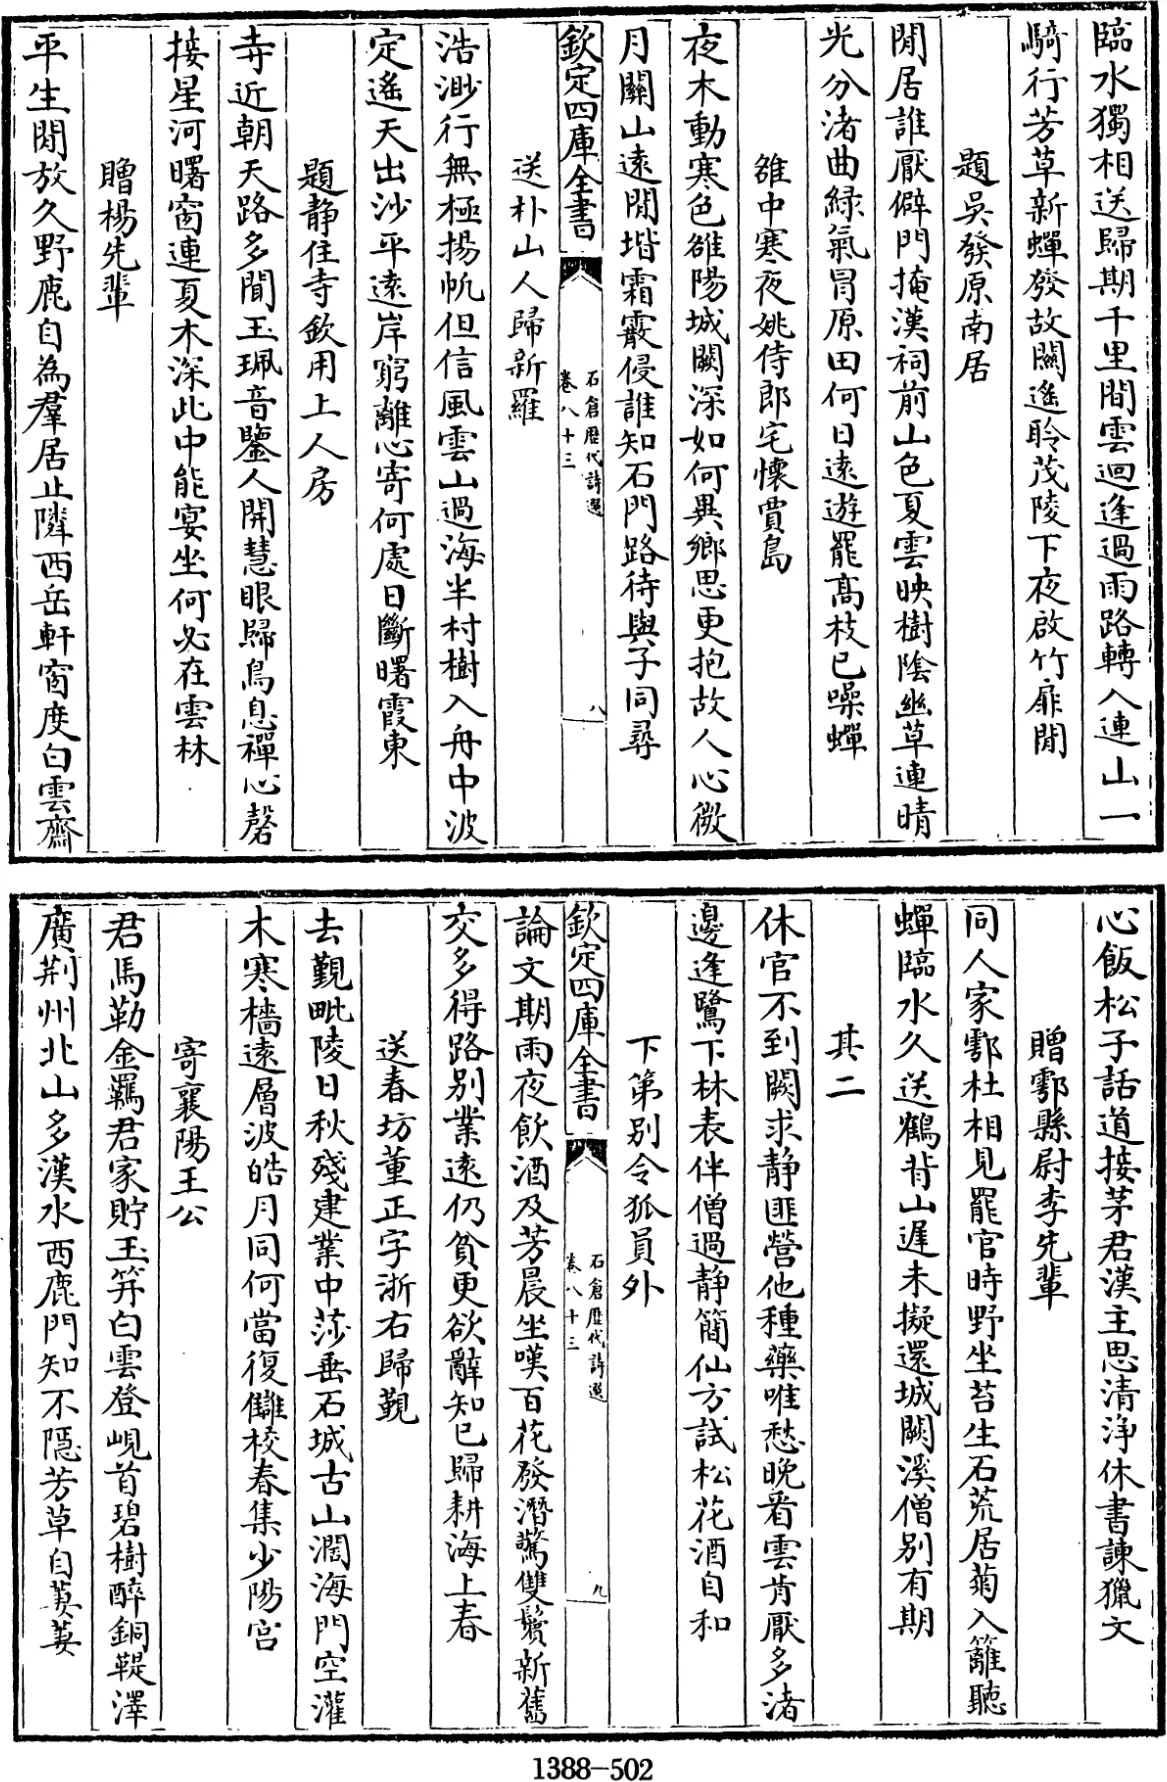 臨水獨相送歸期千里間雲迴逢過雨路轉入連山一
騎行芳草新蟬發故關遙聆茂陵下夜啟竹扉閒
題吳發原南居
閒居誰厭僻門掩漢祠前山色夏雲映樹陰幽草連晴
光分渚曲綠氣冒原田何日遠遊罷高枝已噪蟬
雒中寒夜姚侍郎宅懷賈島
夜木動寒色雒陽城闕深如何異鄉思更抱故人心微
月關山遠閒堦霜霰侵誰知石門路待與子同尋
欽定四庫全書
石倉歷代詩選
卷八十三
八
送朴山人歸新羅
浩渺行無極揚帆但信風雲山過海半村樹入舟中波
定遙天出沙平遠岸窮離心寄何處日斷曙霞東
題靜住寺欽用上人房
寺近朝天路多聞玉珮音鑒人開慧眼歸鳥息禪心磬
接星河曙窗連夏木深此中能宴坐何必在雲林
贈楊先輩
平生閒放久野鹿自為羣居止隣西岳軒窗度白雲齋
心飯松子話道接茅君漢主思清淨休書諫獵文
贈鄠縣尉李先輩
同人家鄠杜相見罷官時野坐苔生石荒居菊入籬聽
蟬臨水久送鶴背山遲未擬還城闕溪僧別有期
其二
休官不到闕求靜匪營他種藥唯愁晚看雲肯厭多渚
邊逢鷺下林表伴僧過靜簡仙方試松花酒自和
下第別令狐員外
欽定四庫全書
石倉歷代詩選
卷八十三
九
論文期雨夜飲酒及芳晨坐嘆百花發潛驚雙鬢新舊
交多得路別業遠仍貧更欲辭知已歸耕海上春
送春坊董正字浙右歸覲
去覲毗陵日秋殘建業中莎垂石城古山濶海門空灌
木寒檣遠層波皓月同何當復讎校春集少陽宮
寄襄陽王公
君馬勒金羈君家貯玉笄白雲登峴首碧樹醉銅鞮澤
廣荆州北山多漢水西鹿門知不隱芳草自萋萋
1388-502